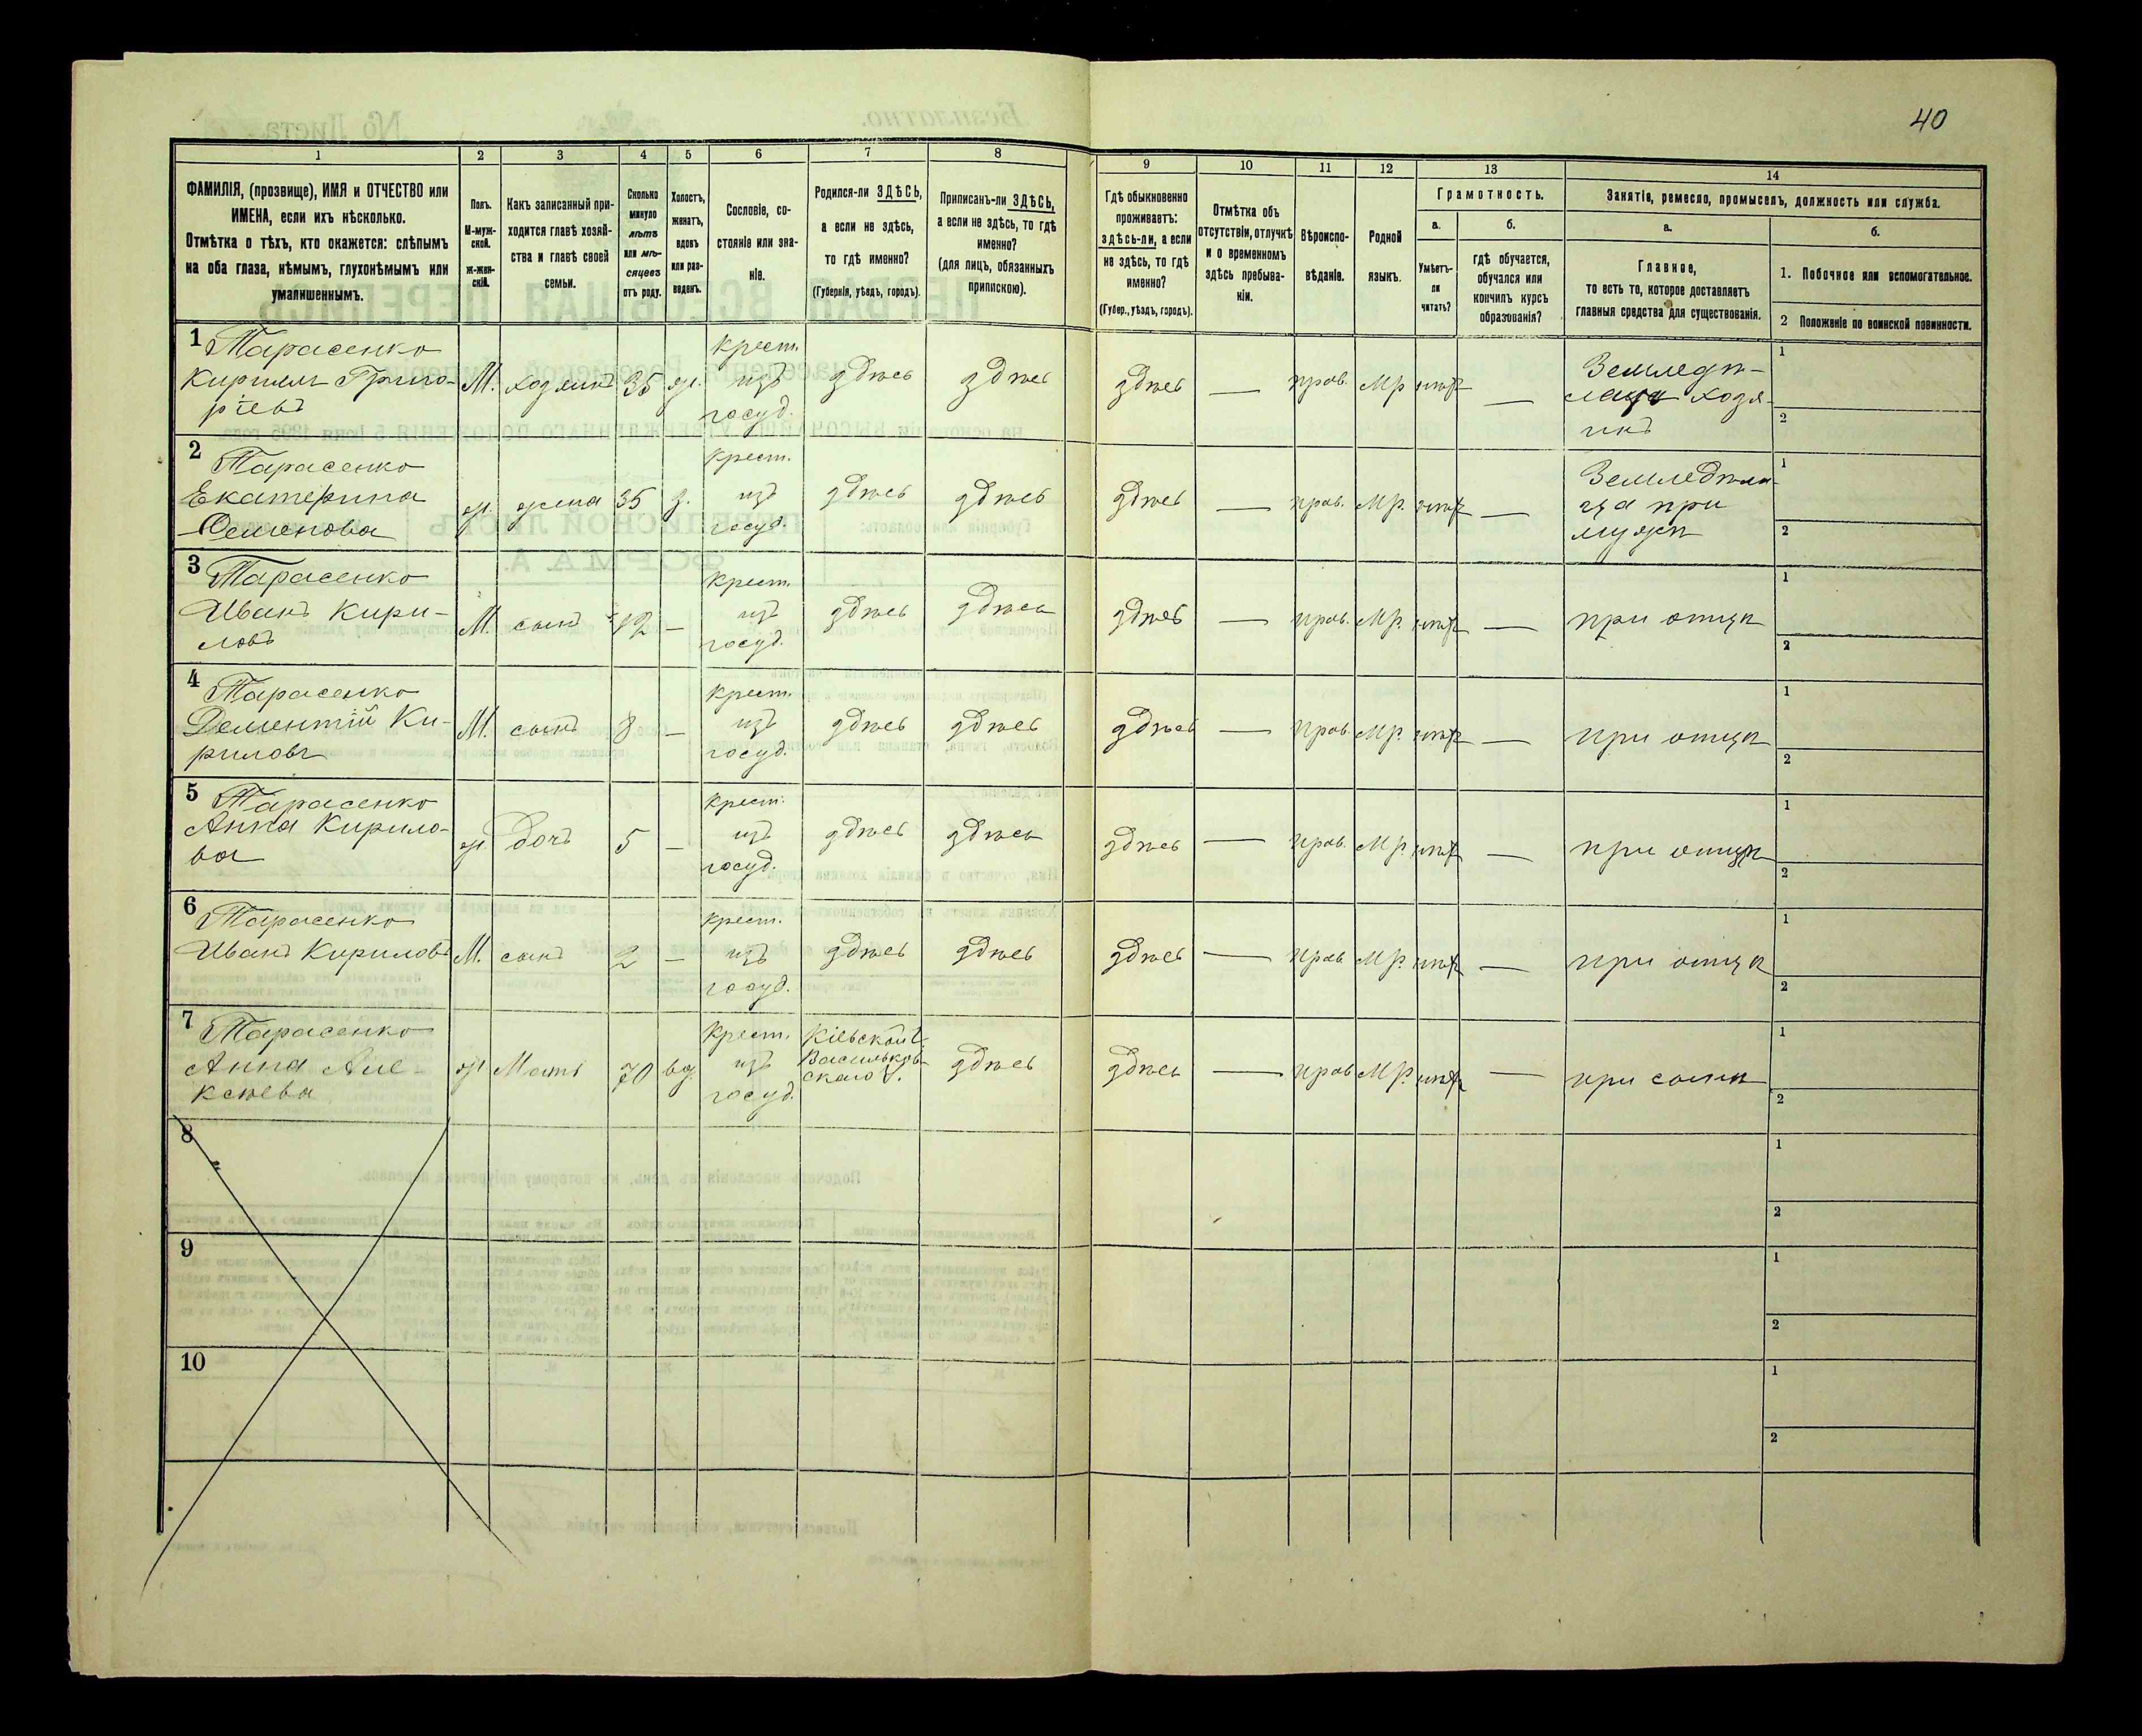 40
1 2 3 4 5 6 7 8 9 10 11 12 13 14
ФАМИЛІЯ, (прозвище), ИМЯ и ОТЧЕСТВО или
ИМЕНА, если ихъ нѣсколько.
Отмѣтка о тѣхъ, кто окажется: слѣпымъ
на оба глаза, нѣмымъ, глухонѣмымъ или
умалишеннымъ.
Полъ.
М-муж-
ской.
ж-жен-
скій.
Какъ записанный при-
ходится главѣ хозяй-
ства и главѣ своей
семьи.
Сколько
минуло
лѣтъ
или мѣ-
сяцевъ
отъ роду.
Холостъ,
женатъ,
вдовъ
или раз-
веденъ.
Сословіе, со-
стояніе или зва-
ніе.
Родился-ли ЗДѢСЬ,
а если не здѣсь,
то гдѣ именно?
(Губернія, уѣздъ, городъ).
Приписанъ-ли ЗДѢСЬ,
а если не здѣсь, то гдѣ
именно?
(для лицъ, обязанныхъ
припискою).
Гдѣ обыкновенно
проживаетъ:
здѣсь-ли, а если
не здѣсь, то гдѣ
именно?
(Губер., уѣздъ, городъ).
Отмѣтка объ
отсутствіи, отлучкѣ
и о временномъ
здѣсь пребыва-
ніи.
Вѣроиспо-
вѣданіе.
Родной
языкъ.
Грамотность.
а.
Умѣетъ-
ли
читать?
б.
гдѣ обучается,
обучался или
кончилъ курсъ
образованія?
Занятіе, ремесло, промыселъ, должность или служба.
а.
Главное,
то есть то, которое доставляетъ
главныя средства для существованія.
б.
1. Побочное или вспомогательное.
2 Положеніе по воинской повинности.
1 Тарасенко
Кирилъ Григо-
ріевъ
М. хозяинъ 35 ж.
крест.
изъ
госуд.
здѣсь здѣсь здѣсь — прав. Мр нѣт —
Земледѣ-
лецъ хозя-
инъ
1
2
2 Тарасенко
Екатерина
Семенова
ж. жена 35 з.
крест.
изъ
госуд.
здѣсь здѣсь здѣсь — прав. Мр. нѣт —
Земледѣли-
ца при
мужѣ
1
2
3 Тарасенко
Иванъ Кири-
ловъ
М. сынъ 12 —
крест.
изъ
госуд.
здѣсь здѣсь здѣсь — прав. Мр. нѣт — при отцѣ
1
2
4 Тарасенко
Дементій Ки-
риловъ
М. сынъ 8 —
крест.
изъ
госуд.
здѣсь здѣсь здѣсь — прав. Мр. нѣт — при отцѣ
1
2
5 Тарасенко
Анна Кирило-
ва
ж. дочь 5 —
крест.
изъ
госуд.
здѣсь здѣсь здѣсь — прав. Мр. нѣт — при отцѣ
1
2
6 Тарасенко
Иванъ Кириловъ
М. сынъ 2 —
крест.
изъ
госуд.
здѣсь здѣсь здѣсь — прав Мр. нѣт — при отцѣ
1
2
7 Тарасенко
Анна Але-
ксѣева
ж Мать 70 вд.
крест.
изъ
госуд.
Кіевской г.
Васильков-
скаго у.
здѣсь здѣсь — прав Мр. нѣт — при сынѣ
1
2
8
1
2
9
1
2
10
1
2